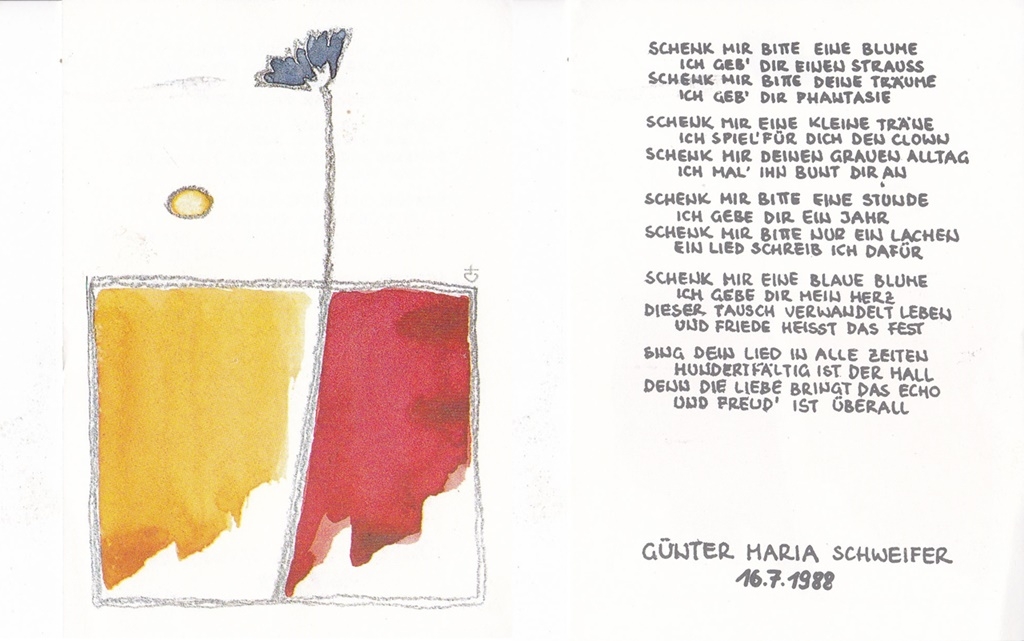 SCHENK MIR BITTE EINE BLUME
ICH GEB' DIR EINEN STRAUSS
SCHENK MIR BITTE DEINE TRÄUME
ICH GEB' DIR PHANTASIE
SCHENK MIR EINE KLEINE TRÄNE
ICH SPIEL' FÜR DICH DEN CLOWN
SCHENK MIR DEINEN GRAUEN ALLTAG
ICH MAL' IHN BUNT DIR AN
SCHENK MIR BITTE EINE STUNDE
ICH GEBE DIR EIN JAHR
SCHENK MIR BITTE NUR EIN LACHEN
EIN LIED SCHREIB ICH DAFÜR
SCHENK MIR EINE BLAUE BLUME
ICH GEBE DIR MEIN HERZ
DIESER TAUSCH VERWANDELT LEBEN
UND FRIEDE HEISST DAS FEST
SING DEIN LIED IN ALLE ZEITEN
HUNDERTFÄLTIG IST DER HALL
DENN DIE LIEBE BRINGT DAS ECHO
UND FREUD' IST ÜBERALL
GÜNTER MARIA SCHWEIFER
16.7.1988